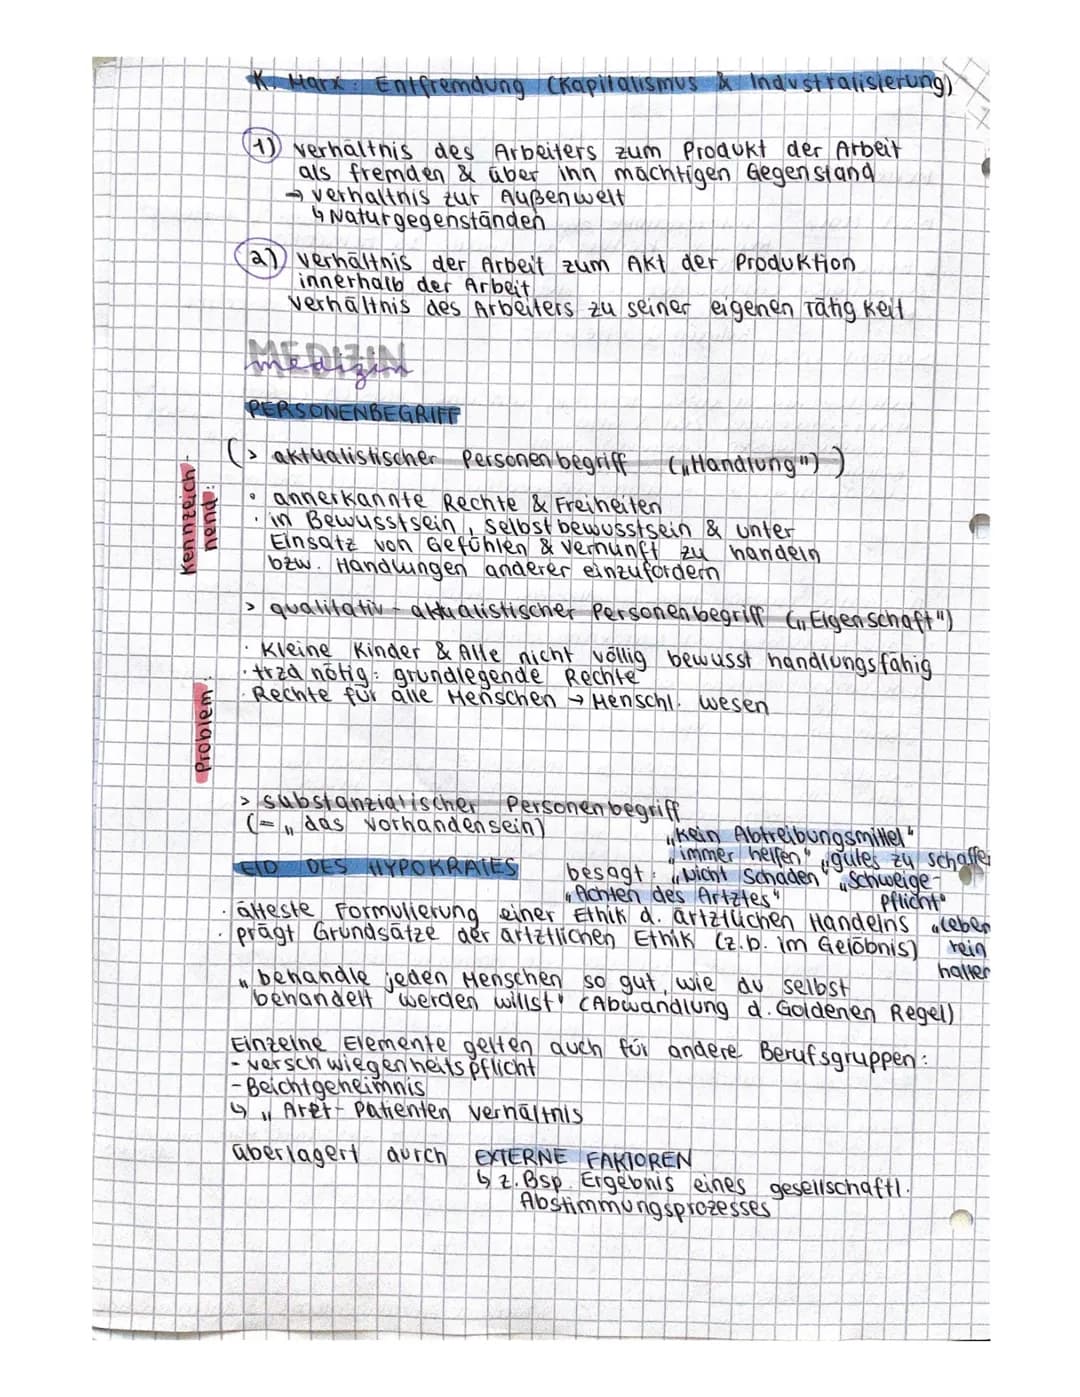 K. Marx: Entfremdung (Kapitalismus & Industralisierung)
1) verhältnis des Arbeiters zum Produkt der Arbeit
als fremden & über inn mächtigen Gegenstand
→ verhältnis zur Außenwelt
↳ Naturgegenständen
2) verhältnis der Arbeit zum Akt der Produktion
innerhalb der Arbeit
verhältnis des Arbeiters zu seiner eigenen Tätigkeit
MEDIZIN
medizin
PERSONENBEGRIFF
(> aktualistischer Personenbegriff („Handlung"))
Kennzeich-
nend:
• annerkannte Rechte & Freiheiten
· in Bewusstsein, Selbstbewusstsein & unter
Einsatz von Gefühlen & Vernunft zu handeln
bzw. Handlungen anderer einzufordern
> qualitativ-aktualistischer Personenbegriff („Eigenschaft")
Problem:
· Kleine Kinder & Alle nicht völlig bewusst handlungsfähig
· trzd nötig: grundlegende Rechte
· Rechte für alle Menschen → Menschl. wesen
> substanzialischer Personenbegriff
(= „das vorhandensein)
„kein Abtreibungsmittel"
„immer helfen" „gutes zu schaffen
EID DES HYPOKRATES besagt: „Nicht Schaden" „Schweige-
pflicht"
„Achten des Artztes"
· älteste Formulierung einer Ethik d. ärtztlichen Handelns „Leben
· prägt Grundsätze der ärtztlichen Ethik (z.b. im Gelöbnis) rein
halten
„behandle jeden Menschen so gut, wie du selbst
behandelt werden willst" (Abwandlung d. Goldenen Regel)
Einzelne Elemente gelten auch für andere Berufsgruppen:
- verschwiegenheitspflicht
- Beichtgeheimnis
↳ „Arzt-Patienten verhältnis
überlagert durch EXTERNE FAKTOREN
↳ z.Bsp. Ergebnis eines gesellschaftl.
Abstimmungsprozesses